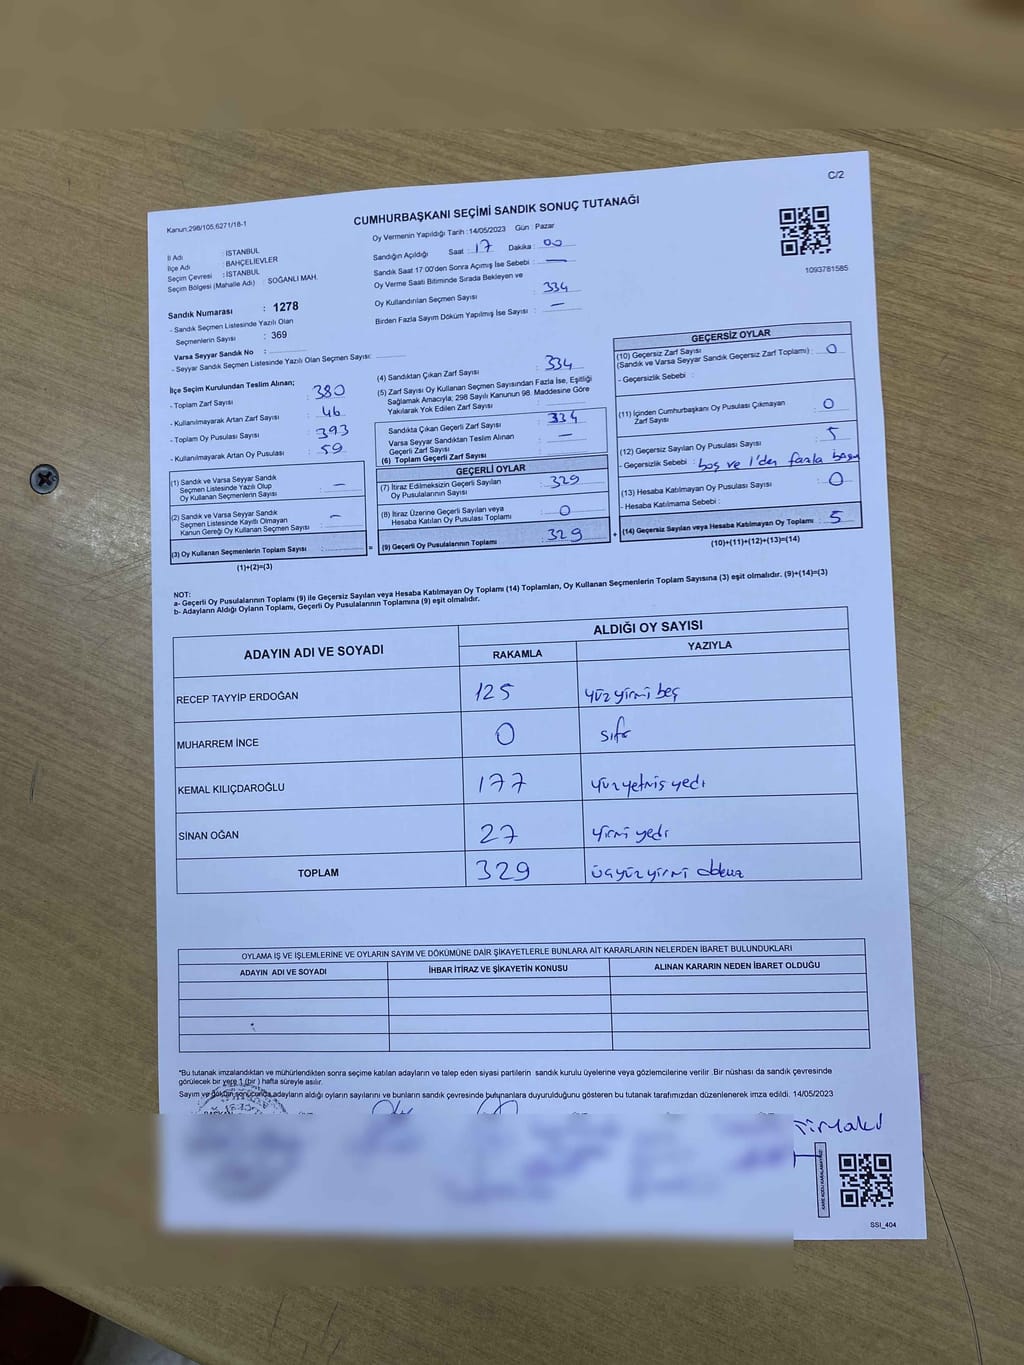 C/2
Kanun,298/105,6271/18-1
CUMHURBAŞKANI SEÇİMİ SANDIK SONUÇ TUTANAĞI
İl Adı : İSTANBUL
İlçe Adı : BAHÇELİEVLER
Seçim Çevresi : İSTANBUL
Seçim Bölgesi (Mahalle Adı) : SOĞANLI MAH.
Sandık Numarası : 1278
- Sandık Seçmen Listesinde Yazılı Olan
Seçmenlerin Sayısı : 369
Varsa Seyyar Sandık No :
- Seyyar Sandık Seçmen Listesinde Yazılı Olan Seçmen Sayısı:
Oy Vermenin Yapıldığı Tarih : 14/05/2023 Gün : Pazar
Sandığın Açıldığı Saat : 17 Dakika : 00
Sandık Saat 17:00'den Sonra Açımış İse Sebebi : —
Oy Verme Saati Bitiminde Sırada Bekleyen ve
Oy Kullandırılan Seçmen Sayısı : 334
Birden Fazla Sayım Döküm Yapılmış İse Sayısı : —
1093781585
İlçe Seçim Kurulundan Teslim Alınan;
- Toplam Zarf Sayısı : 380
- Kullanılmayarak Artan Zarf Sayısı : 46
- Toplam Oy Pusulası Sayısı : 393
- Kullanılmayarak Artan Oy Pusulası : 59
(1) Sandık ve Varsa Seyyar Sandık
Seçmen Listesinde Yazılı Olup
Oy Kullanan Seçmenlerin Sayısı : —
(2) Sandık ve Varsa Seyyar Sandık
Seçmen Listesinde Kayıtlı Olmayan
Kanun Gereği Oy Kullanan Seçmen Sayısı : —
(3) Oy Kullanan Seçmenlerin Toplam Sayısı :
(1)+(2)=(3)
(4) Sandıktan Çıkan Zarf Sayısı : 334
(5) Zarf Sayısı Oy Kullanan Seçmen Sayısından Fazla İse, Eşitliği
Sağlamak Amacıyla; 298 Sayılı Kanunun 98. Maddesine Göre
Yakılarak Yok Edilen Zarf Sayısı :
Sandıkta Çıkan Geçerli Zarf Sayısı : 334
Varsa Seyyar Sandıktan Teslim Alınan
Geçerli Zarf Sayısı : —
(6) Toplam Geçerli Zarf Sayısı :
GEÇERLİ OYLAR
(7) İtiraz Edilmeksizin Geçerli Sayılan
Oy Pusulalarının Sayısı : 329
(8) İtiraz Üzerine Geçerli Sayılan veya
Hesaba Katılan Oy Pusulası Toplamı : 0
= (9) Geçerli Oy Pusulalarının Toplamı : 329
GEÇERSİZ OYLAR
(10) Geçersiz Zarf Sayısı
(Sandık ve Varsa Seyyar Sandık Geçersiz Zarf Toplamı) : 0
- Geçersizlik Sebebi :
(11) İçinden Cumhurbaşkanı Oy Pusulası Çıkmayan
Zarf Sayısı : 0
(12) Geçersiz Sayılan Oy Pusulası Sayısı : 5
- Geçersizlik Sebebi : boş ve 1'den fazla
(13) Hesaba Katılmayan Oy Pusulası Sayısı : 0
- Hesaba Katılmama Sebebi :
+ (14) Geçersiz Sayılan veya Hesaba Katılmayan Oy Toplamı : 5
(10)+(11)+(12)+(13)=(14)
NOT:
a- Geçerli Oy Pusulalarının Toplamı (9) ile Geçersiz Sayılan veya Hesaba Katılmayan Oy Toplamı (14) Toplamları, Oy Kullanan Seçmenlerin Toplam Sayısına (3) eşit olmalıdır. (9)+(14)=(3)
b- Adayların Aldığı Oyların Toplamı, Geçerli Oy Pusulalarının Toplamına (9) eşit olmalıdır.
ADAYIN ADI VE SOYADI
ALDIĞI OY SAYISI
RAKAMLA
YAZIYLA
RECEP TAYYİP ERDOĞAN 125 yüzyirmi beş
MUHARREM İNCE 0 sıfır
KEMAL KILIÇDAROĞLU 177 yüzyetmiş yedi
SİNAN OĞAN 27 yirmi yedi
TOPLAM 329 üçyüzyirmi dokuz
OYLAMA İŞ VE İŞLEMLERİNE VE OYLARIN SAYIM VE DÖKÜMÜNE DAİR ŞİKAYETLERLE BUNLARA AİT KARARLARIN NELERDEN İBARET BULUNDUKLARI
ADAYIN ADI VE SOYADI
İHBAR İTİRAZ VE ŞİKAYETİN KONUSU
ALINAN KARARIN NEDEN İBARET OLDUĞU
"Bu tutanak imzalandıktan ve mühürlendikten sonra seçime katılan adayların ve talep eden siyasi partilerin sandık kurulu üyelerine veya gözlemcilerine verilir .Bir nüshası da sandık çevresinde
görülecek bir yere 1 (bir ) hafta süreyle asılır.
Sayım ve döküm sonucunda adayların aldığı oyların sayılarını ve bunların sandık çevresinde bulunanlara duyurulduğunu gösteren bu tutanak tarafımızdan düzenlenerek imza edildi. 14/05/2023
SSI_404